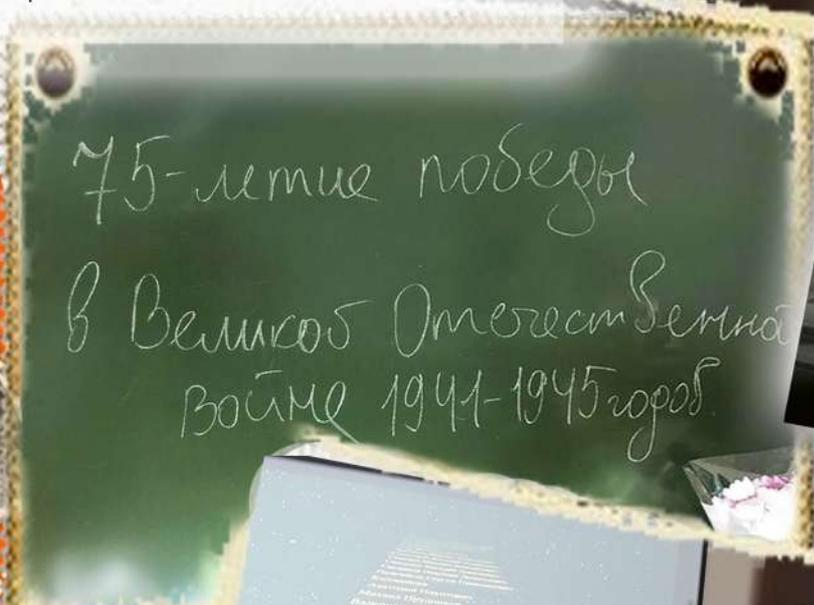 75-летие победы
в Великой Отечественно
войне 1941-1945 годов.